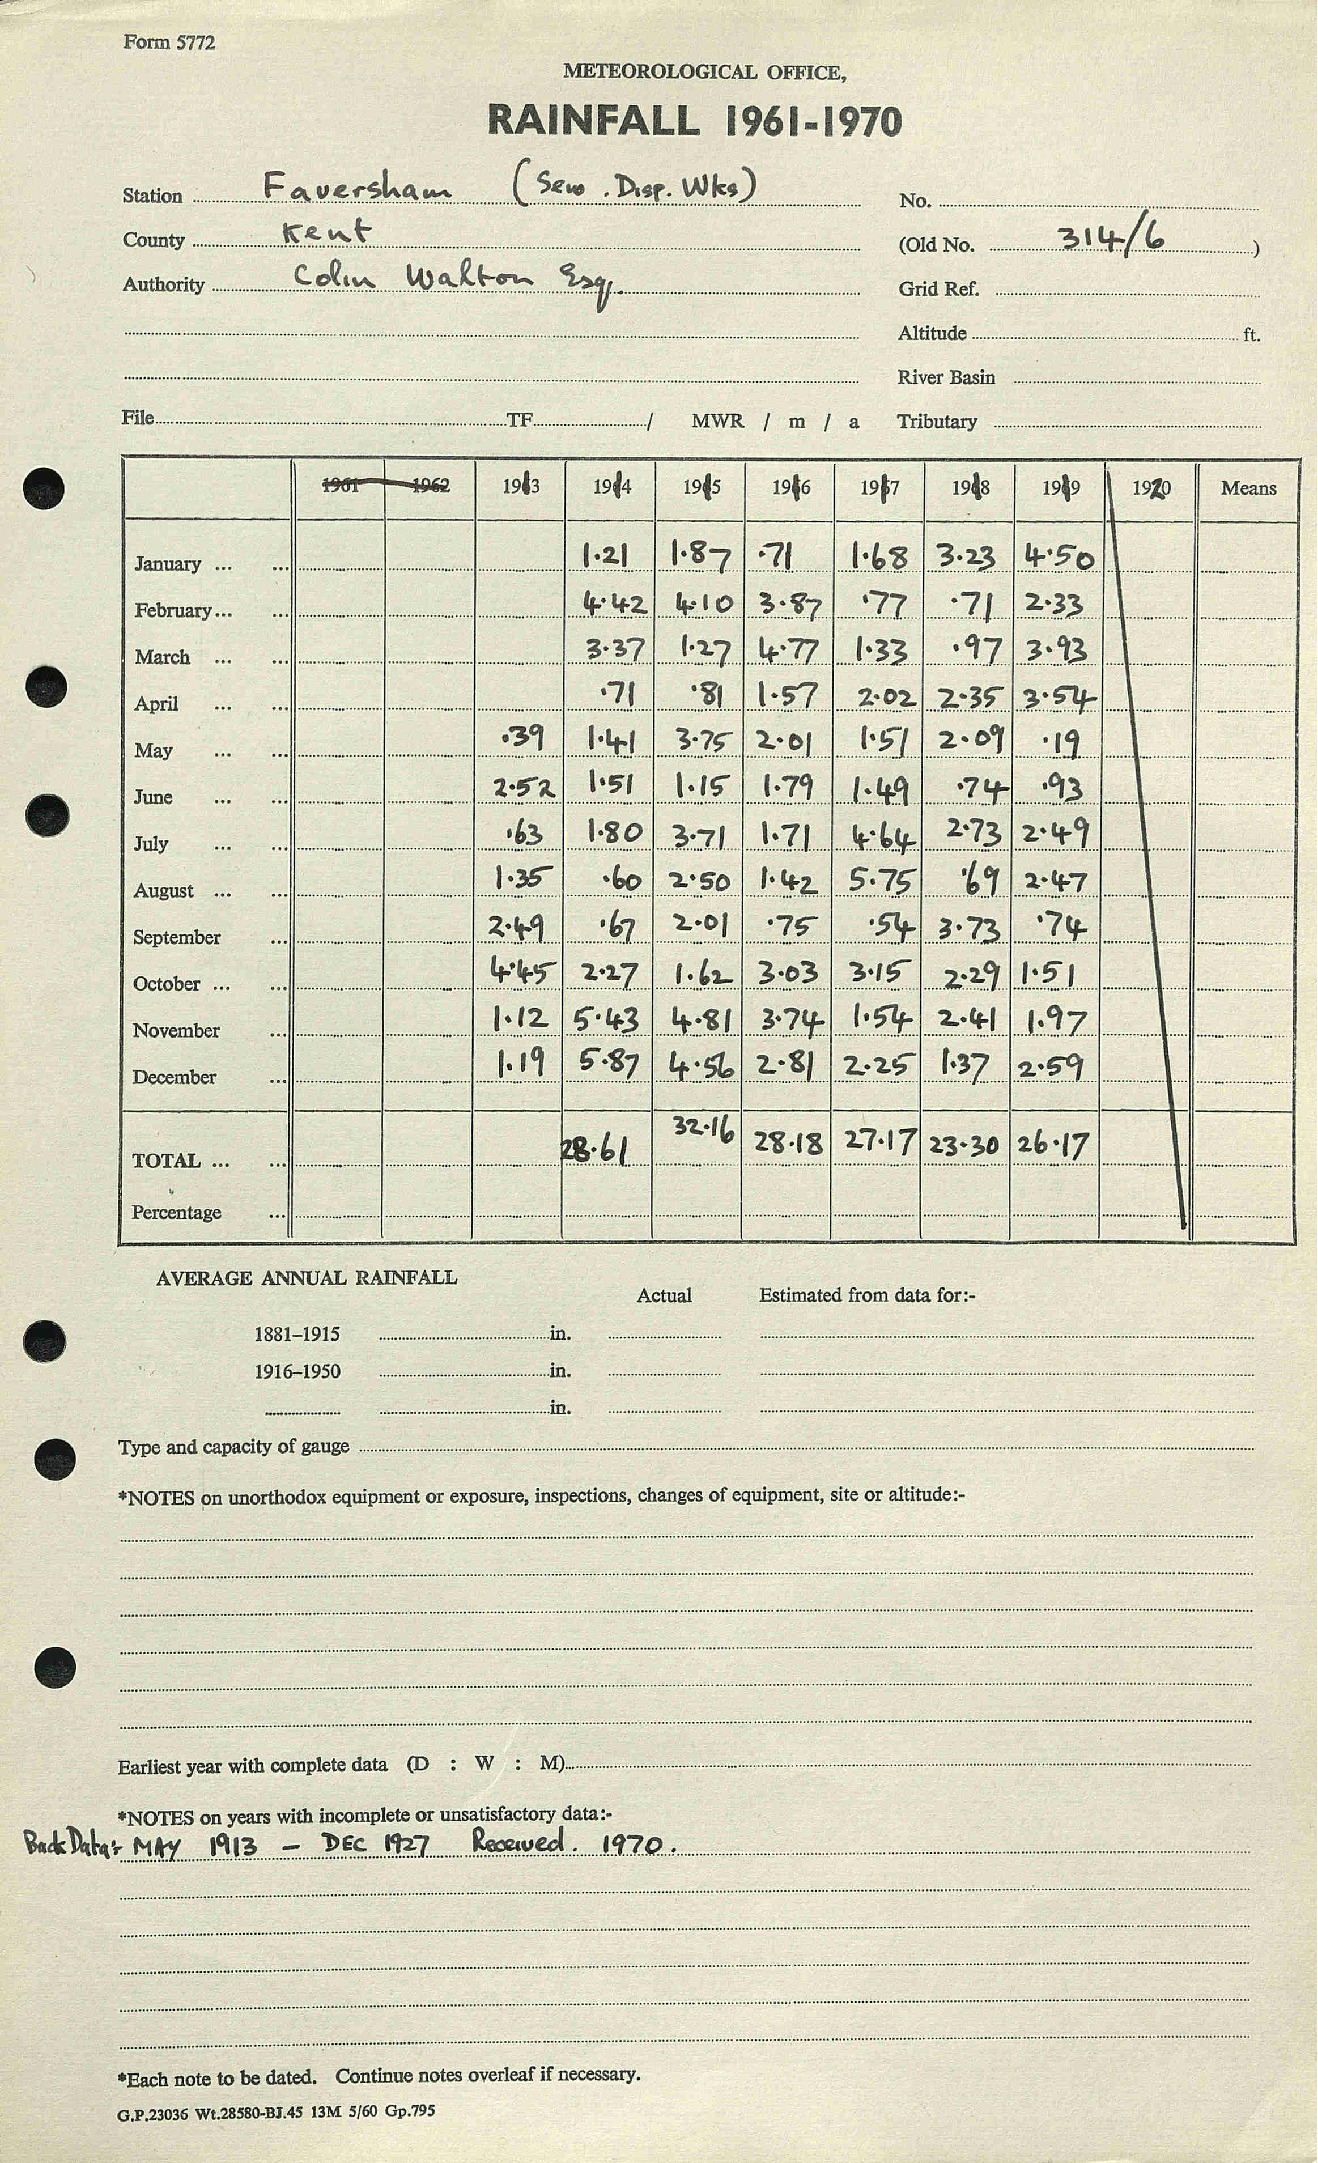 Form 5772
METEOROLOGICAL OFFICE,
RAINFALL 1961-1970
Station Faversham (Sew. Disp. Wks) No.
County Kent (Old No. 314/6)
Authority Colin Walton Esq. Grid Ref.
Altitude ft.
River Basin
File TF / MWR / m / a Tributary
1961 1962 1913 1914 1915 1916 1917 1918 1919 1920 Means
January ... ... 1.21 1.87 .71 1.68 3.23 4.50
February... ... 4.42 4.10 3.87 .77 .71 2.33
March ... ... 3.37 1.27 4.77 1.33 .97 3.93
April ... ... .71 .81 1.57 2.02 2.35 3.54
May ... ... .39 1.41 3.75 2.01 1.51 2.09 .19
June ... ... 2.52 1.51 1.15 1.79 1.49 .74 .93
July ... ... .63 1.80 3.71 1.71 4.64 2.73 2.49
August ... ... 1.35 .60 2.50 1.42 5.75 .69 2.47
September ... 2.49 .67 2.01 .75 .54 3.73 .74
October ... ... 4.45 2.27 1.62 3.03 3.15 2.29 1.51
November ... 1.12 5.43 4.81 3.74 1.54 2.41 1.97
December ... 1.19 5.87 4.56 2.81 2.25 1.37 2.59
TOTAL ... ... 28.61 32.16 28.18 27.17 23.30 26.17
Percentage ...
AVERAGE ANNUAL RAINFALL
Actual Estimated from data for:-
1881-1915 in.
1916-1950 in.
in.
Type and capacity of gauge
*NOTES on unorthodox equipment or exposure, inspections, changes of equipment, site or altitude:-
Earliest year with complete data (D : W : M)
*NOTES on years with incomplete or unsatisfactory data:-
Back Data: MAY 1913 - DEC 1927 Received. 1970.
*Each note to be dated. Continue notes overleaf if necessary.
G.P.23036 Wt.28580-BJ.45 13M 5/60 Gp.795